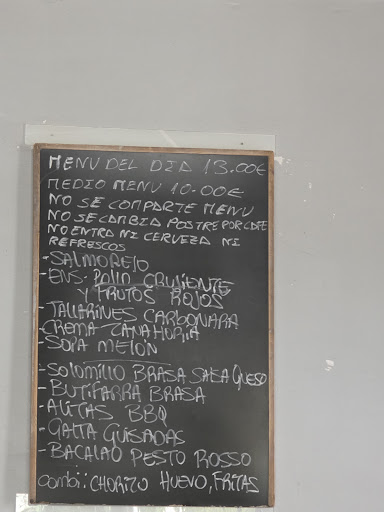 MENU DEL DIA 13.00€
MEDIO MENU 10.00€
NO SE COMPARTE MENU
NO SE CAMBIA POSTRE POR CAFE
NO ENTRA NI CERVEZA NI
REFRESCOS
-SALMOREJO
-ENS. POLLO CRUJIENTE
Y FRUTOS ROJOS
-TALLARINES CARBONARA
-CREMA ZANAHORIA
-SOPA MELON
-SOLOMILLO BRASA SALSA QUESO
-BUTIFARRA BRASA
-ALITAS BBQ
-GALTA GUISADAS
-BACALAO PESTO ROSSO
combi: CHORIZO HUEVO, FRITAS